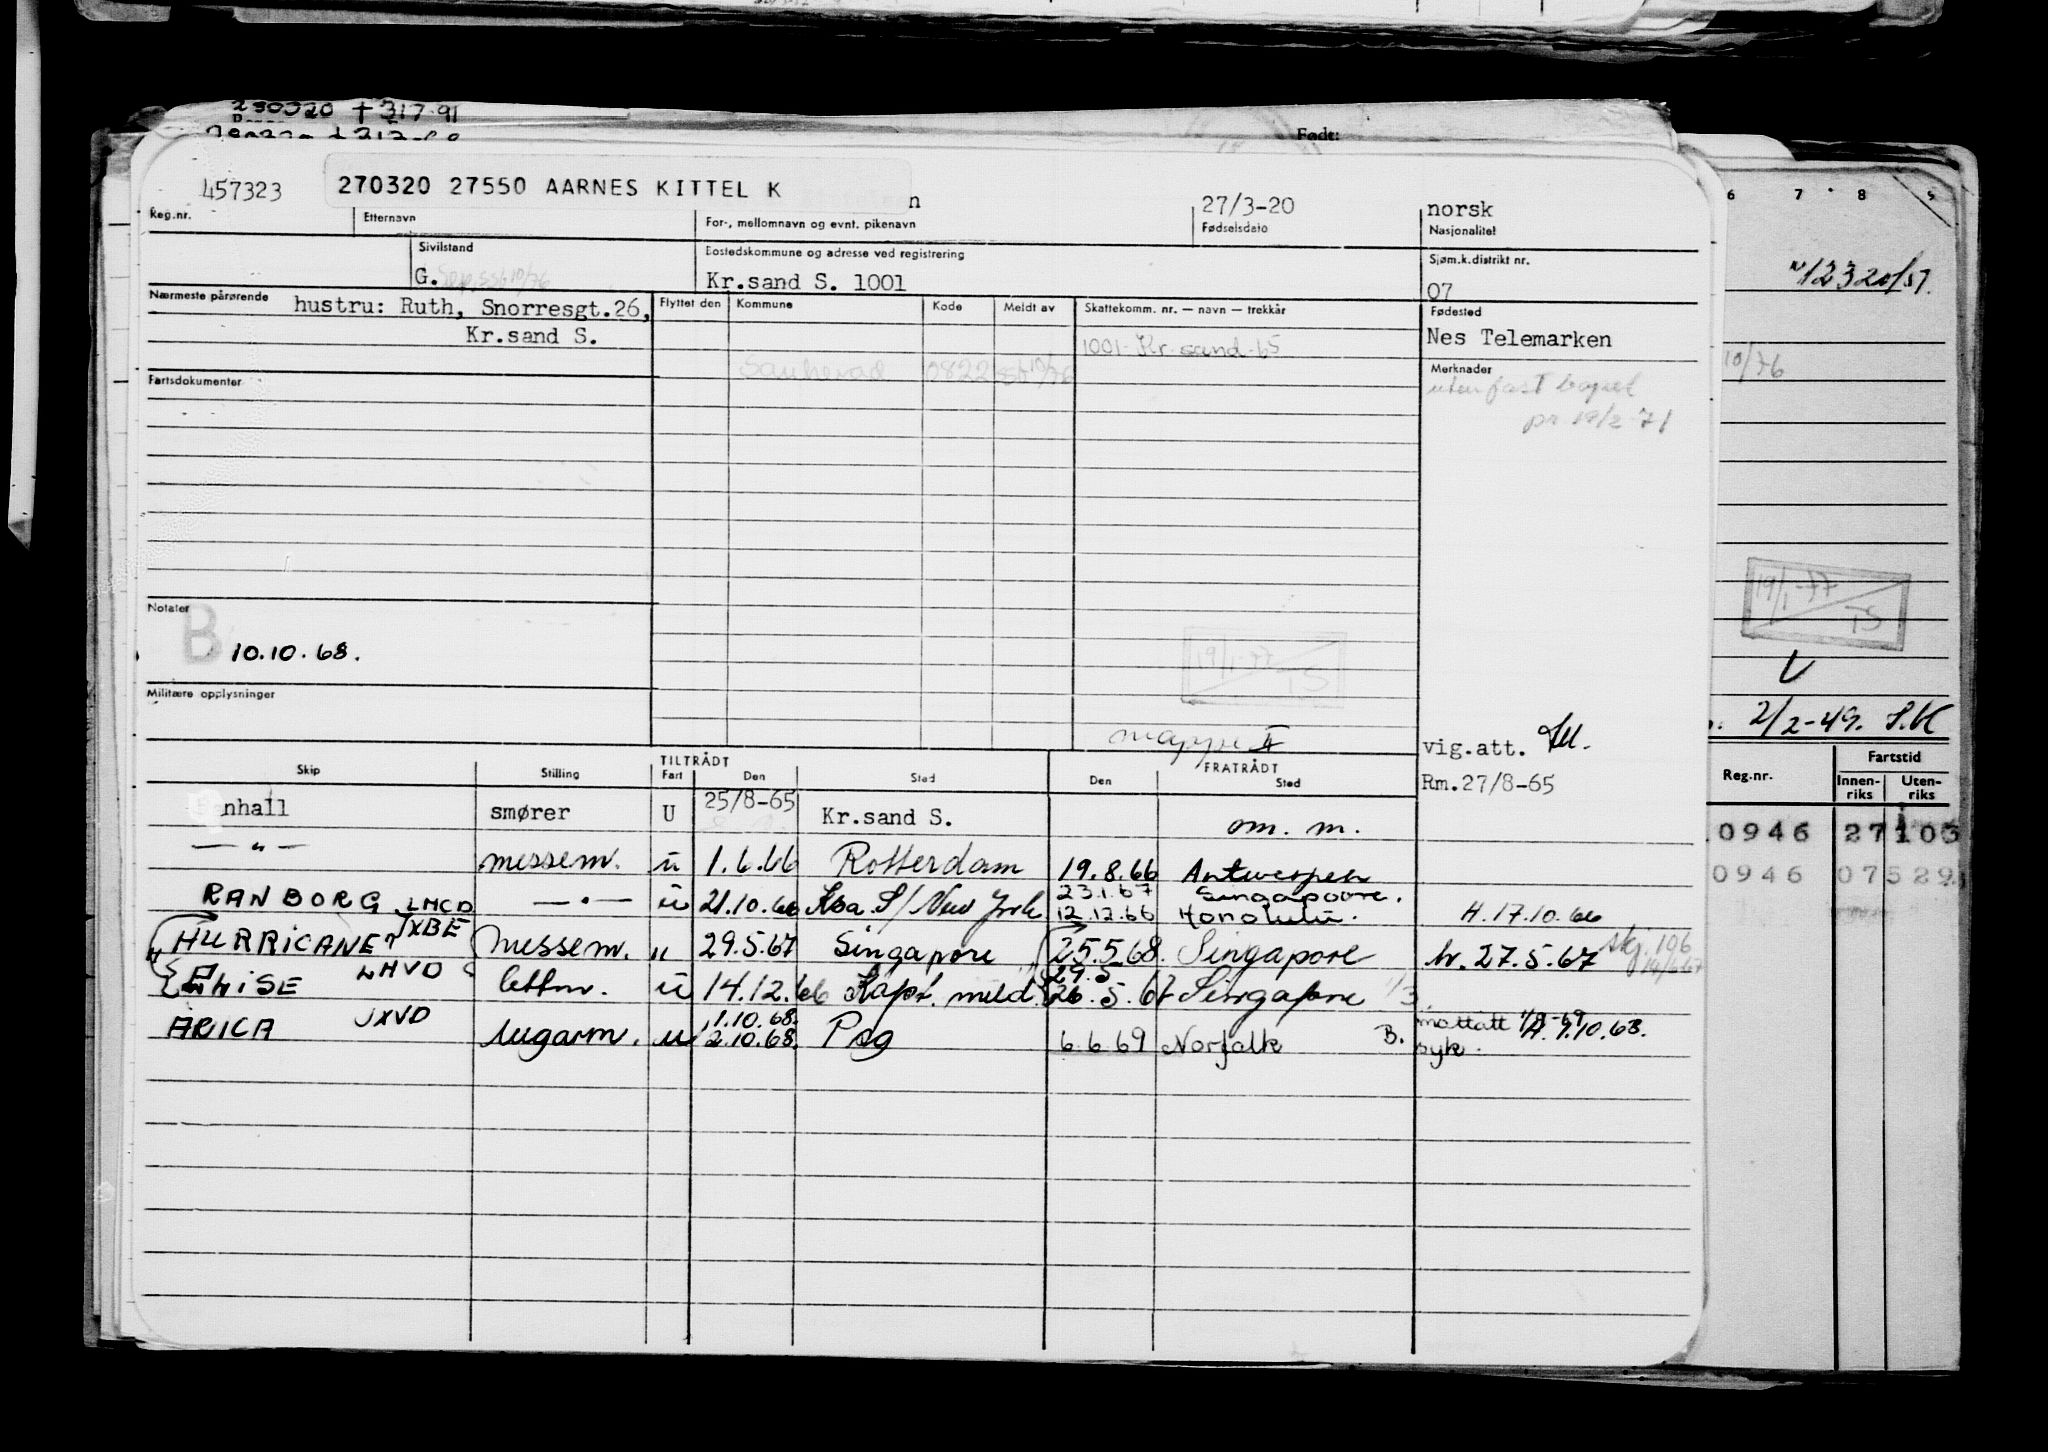 230320 + 317.91
Født:
457323 270320 27550 AARNES KITTEL K n 27/3-20 norsk
Reg.nr. Etternavn For-, mellomnavn og evnt. pikenavn Fødselsdato Nasjonalitet
Sivilstand Bostedskommune og adresse ved registrering Sjøm.k.distrikt nr.
G. Kr.sand S. 1001 07
Nærmeste pårørende hustru: Ruth, Snorresgt.26, Flyttet den Kommune Kode Meldt av Skattekomm. nr. — navn — trekkår Fødested
Kr.sand S. 1001 Kr.sand-65 Nes Telemarken
Sauherad 0822 10/76
Fartsdokumenter Merknader
uten fast bopel
pr 19/2-71
Notater
B 10.10.68.
19/1-77
TS
Militære opplysninger
mappe II vig.att.
Skip Stilling TILTRÅDT FRATRÅDT
Fart Den Sted Den Sted Rm.27/8-65
nhall smører U 25/8-65 Kr.sand S. om. m.
— " — messem. u 1.6.66 Rotterdam 19.8.66 Antwerpen
RANBORG LMCD — " — u 21.10.66 Koa S/ New York 23.1.67 Singapoore.
12.12.66 Honolulu. H.17.10.66
HURRICANE JXBE messem. " 29.5.67 Singapore 25.5.68. Singapore h. 27.5.67 skj. 106
14/6-67
ELISE LHVD lettm. u 14.12.66 Kapt. meld. 29.5
26.5.67 Singapore
ARICA JXVD lugarm. u 1.10.68.
2.10.68. Psg 6.6.69 Norfolk B. mottatt H. 9.10.68.
syk.
6 7 8 9
12320/51.
10/76
19/1-77
TS
V
2/2-49. S.K
Reg.nr. Fartstid
Innen-riks Uten-riks
0946 27 103
0946 07529